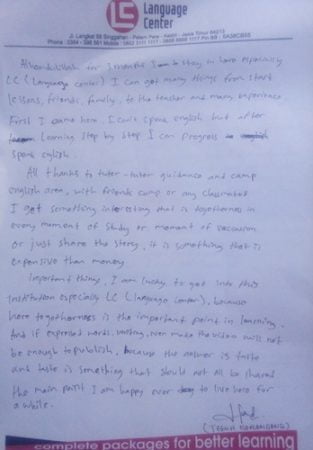 LC Language
Center
Jl. Langkat 88 Singgahan - Pelem Pare - Kediri - Jawa Timur 64213
Alhamdulillah for 3 months I stay in here especially
LC (Language center) I can got many things from start
lessons, friends, family, to the teacher and many experience
First I came here. I can't speak english but after
learning step by step I can progress
speak english.
All thanks to tutor-tutor guidance and camp
english area, with friends camp or any classmates
I got something interesting that is togetherness in
every moment of study or moment of vacation
or just share the story, it is something that is
expensive than money
Important things, I am lucky to got into this
Institution especially LC (language center), because
here togetherness is the important point in learning.
And if expressed words, writing, even make the video will not
be enough to publish, because the answer is taste
and taste is something that should not all be shared
the main point I am happy ever to live here for
a while.
complete packages for better learning